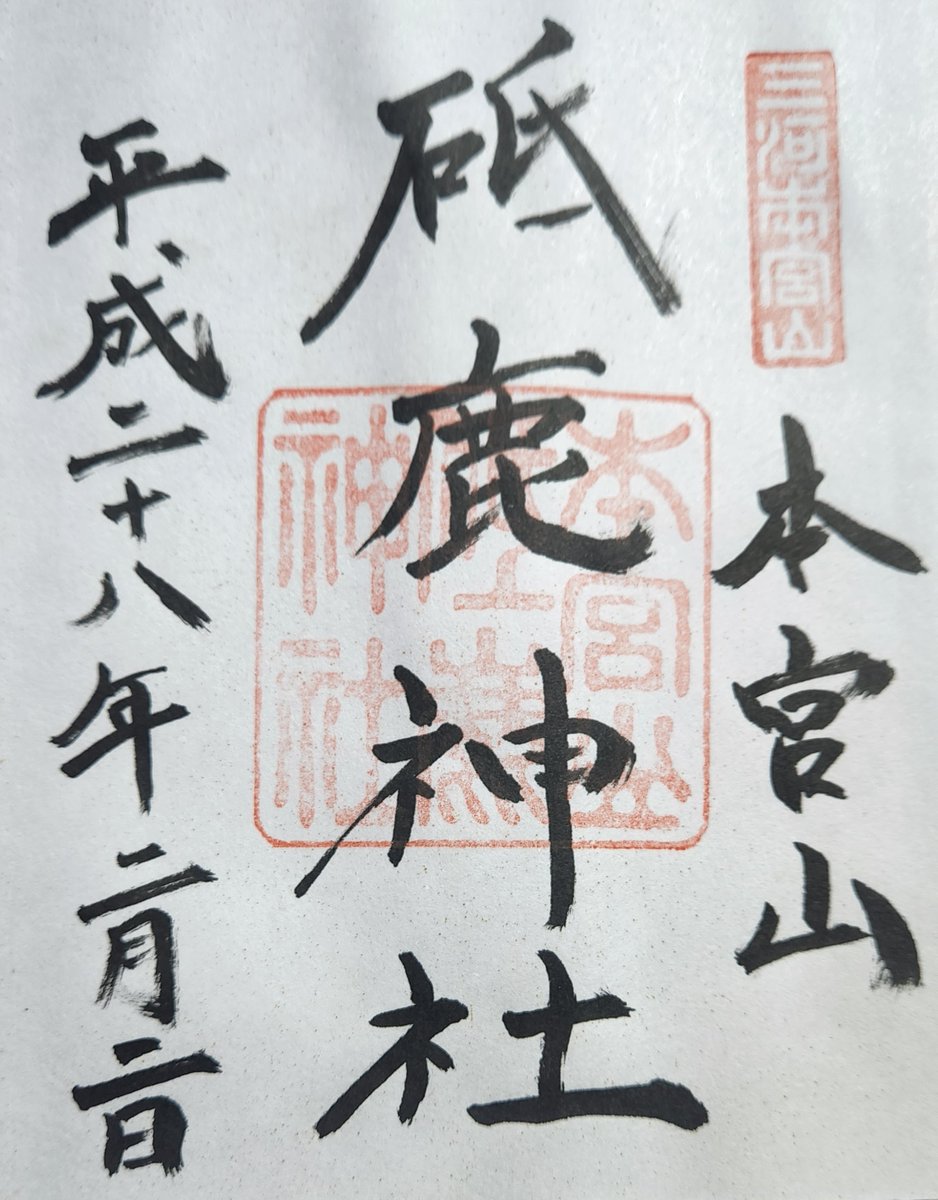 三河本宮山
本宮山
砥鹿神社
平成二十八年二月二日
本宮山
神社